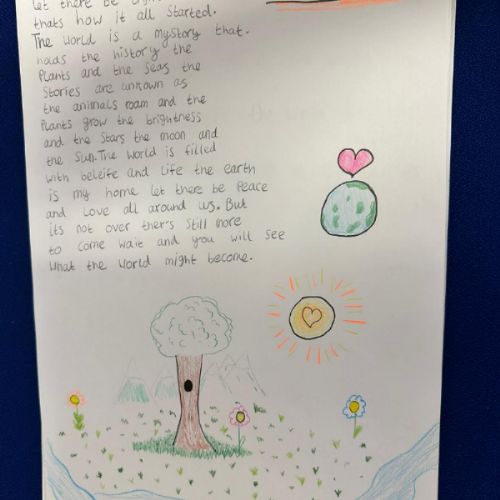 let there be
thats how it all started.
The world is a mystory that
holds the history the
Plants and the Seas the
Stories are unkown as
the animals roam and the
Plants grow the brightness
and the Stars the moon and
the Sun. The world is filled
with beleife and Life the earth
is my home let there be Peace
and Love all around us. But
its not over ther's Still more
to Come wait and you will See
What the World might become.